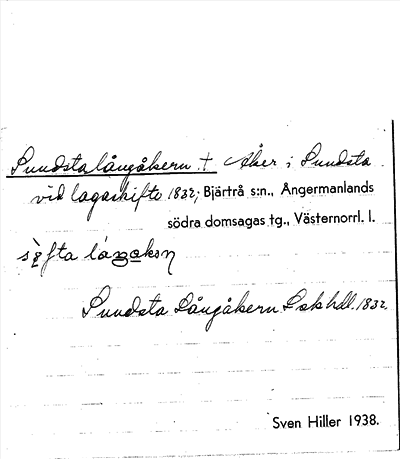 Sundsta långåkern † Åker i Sundsta
vid lagaskifte 1832; Bjärtrå s:n., Ångermanlands
södra domsagas tg., Västernorrl. l.
Sundsta Långåkern Lskhdl. 1832.
Sven Hiller 1938.